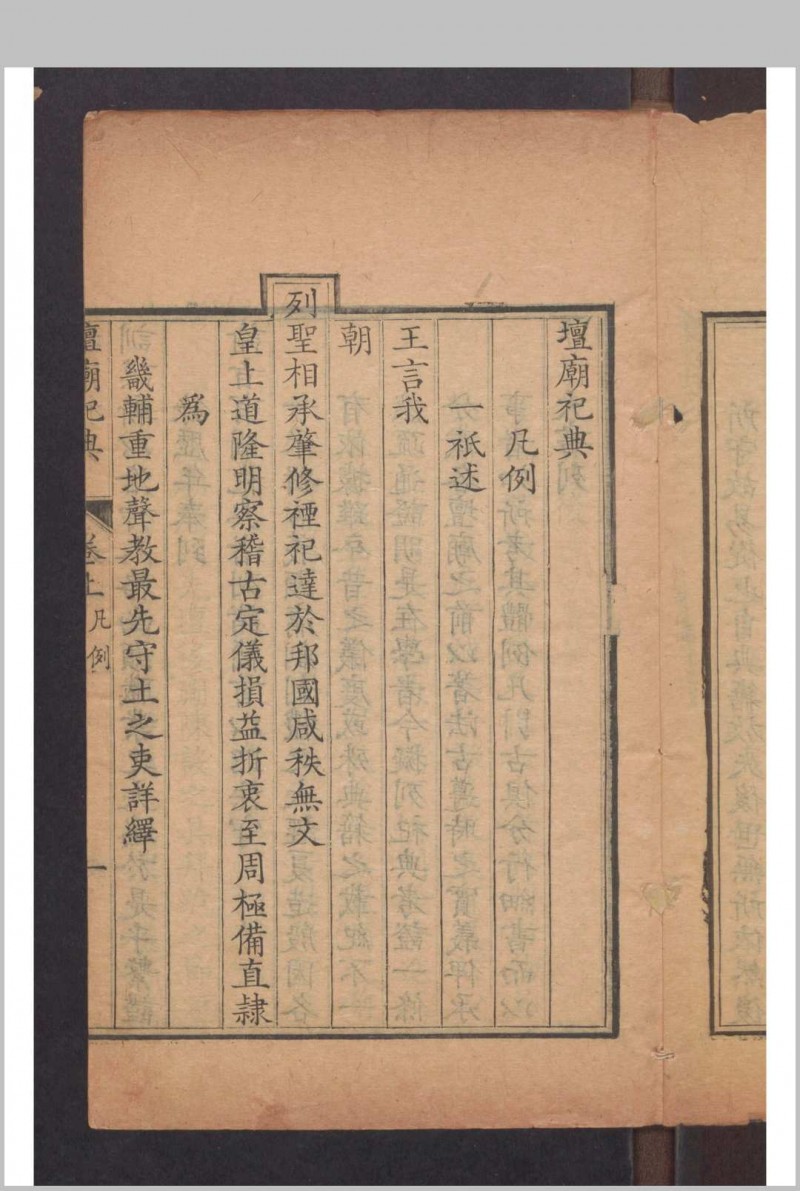 壇廟祀典
凡例
一祇述
王言我
朝
列聖相承肇修禋祀達於邦國咸秩無文
皇上道隆明察稽古定儀損益折衷至周極備直隸
為
畿輔重地聲教最先守土之吏詳繹
壇廟祀典 卷上 凡例 一